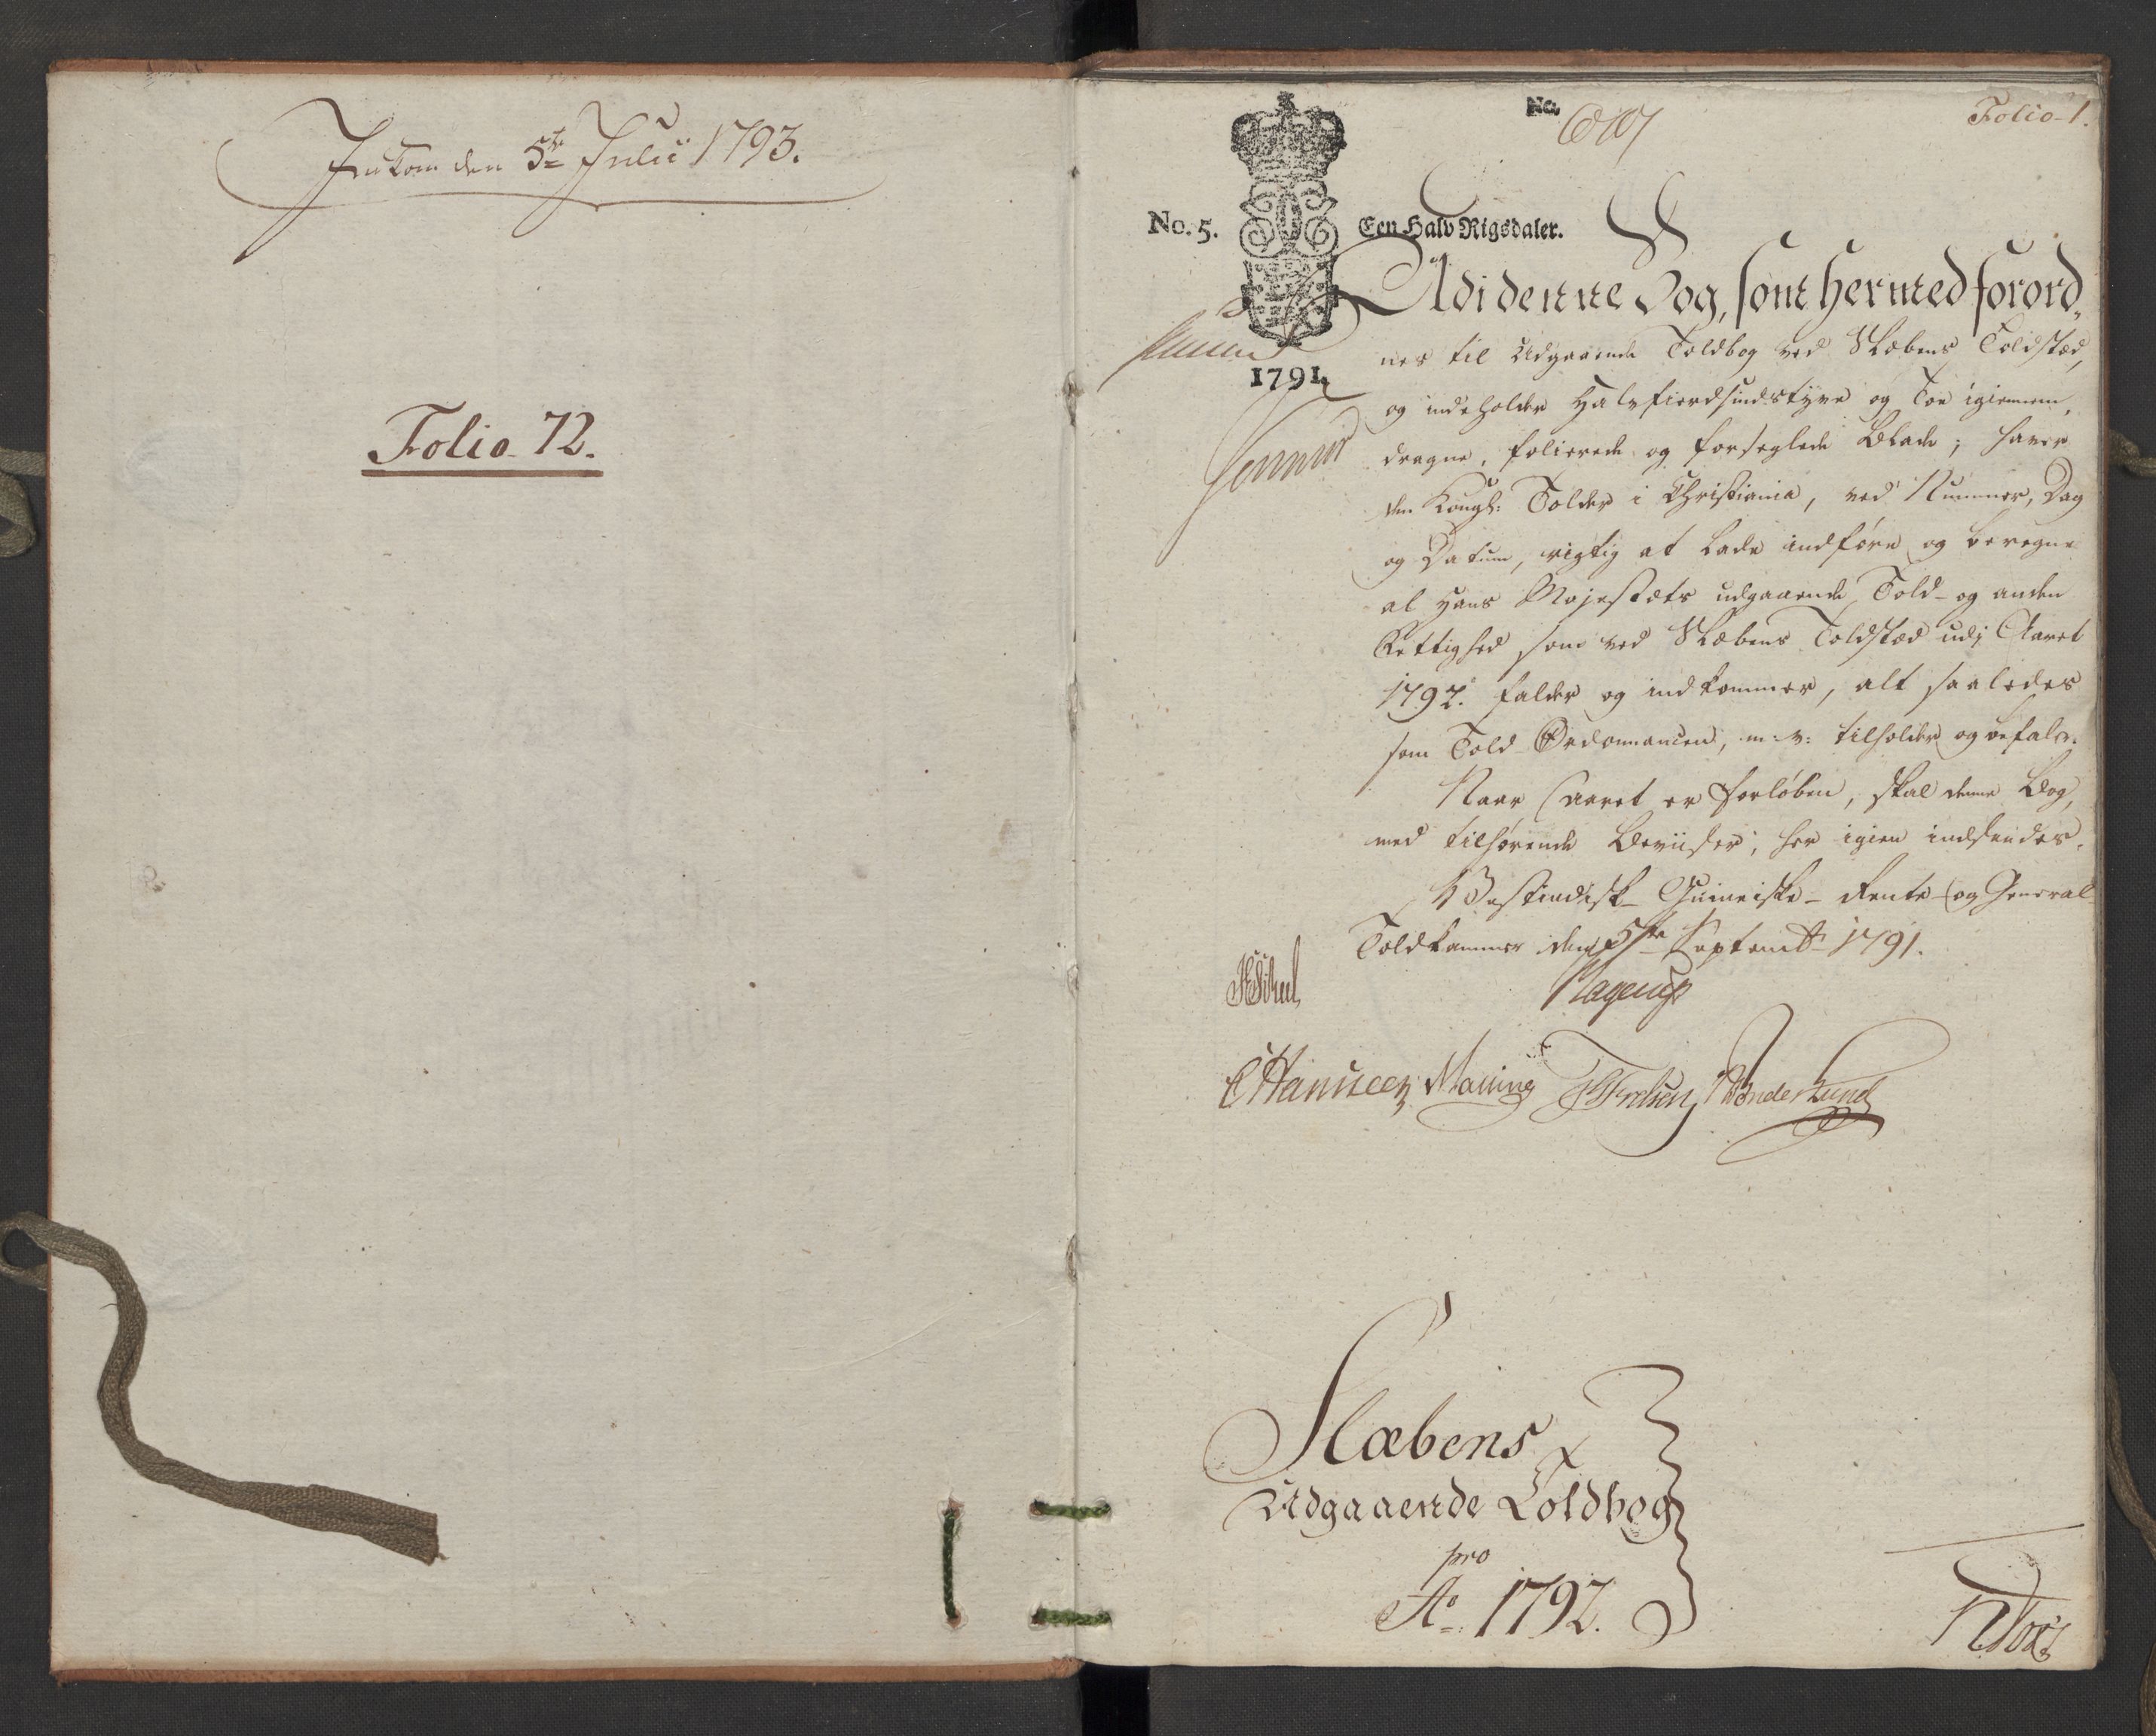 Indkom den 5te Julii 1793.
Folio 72.
No.
Folio 1.
No. 5.
Een Halv Rigsdaler.
Udi denne Bog, som hermed forord,,
nes til Udgaaende Toldbog ved Slæbens Toldstæd,
og indeholder Halvfierdsindstyve og Toe igiennem,
dragne, folierede og forseglede Blade; haver
den Kongl: Tolder i Christiania, ved Nummer, Dag
og Datum, rigtig at lade indføre og beregne
al Hans Majestæts udgaaende Told- og anden
Rettighed som ved Slæbens Toldstæd udj Aaret
1792. falder og indkommer, alt saaledes
som Told-Ordonnancen, m: v: tilholder og befaler.
Naar Aaret er forløben, skal denne Bog,
med tilhørende Beviiser, her igien indsendes.
Vestindisk- Guineiske- Rente- og General-
Toldkammer den 5te Septembr 1791.
1791.
Hagerup
CHanssen
Slæbens
Udgaaende Toldbog
pro
Ao. 1792.